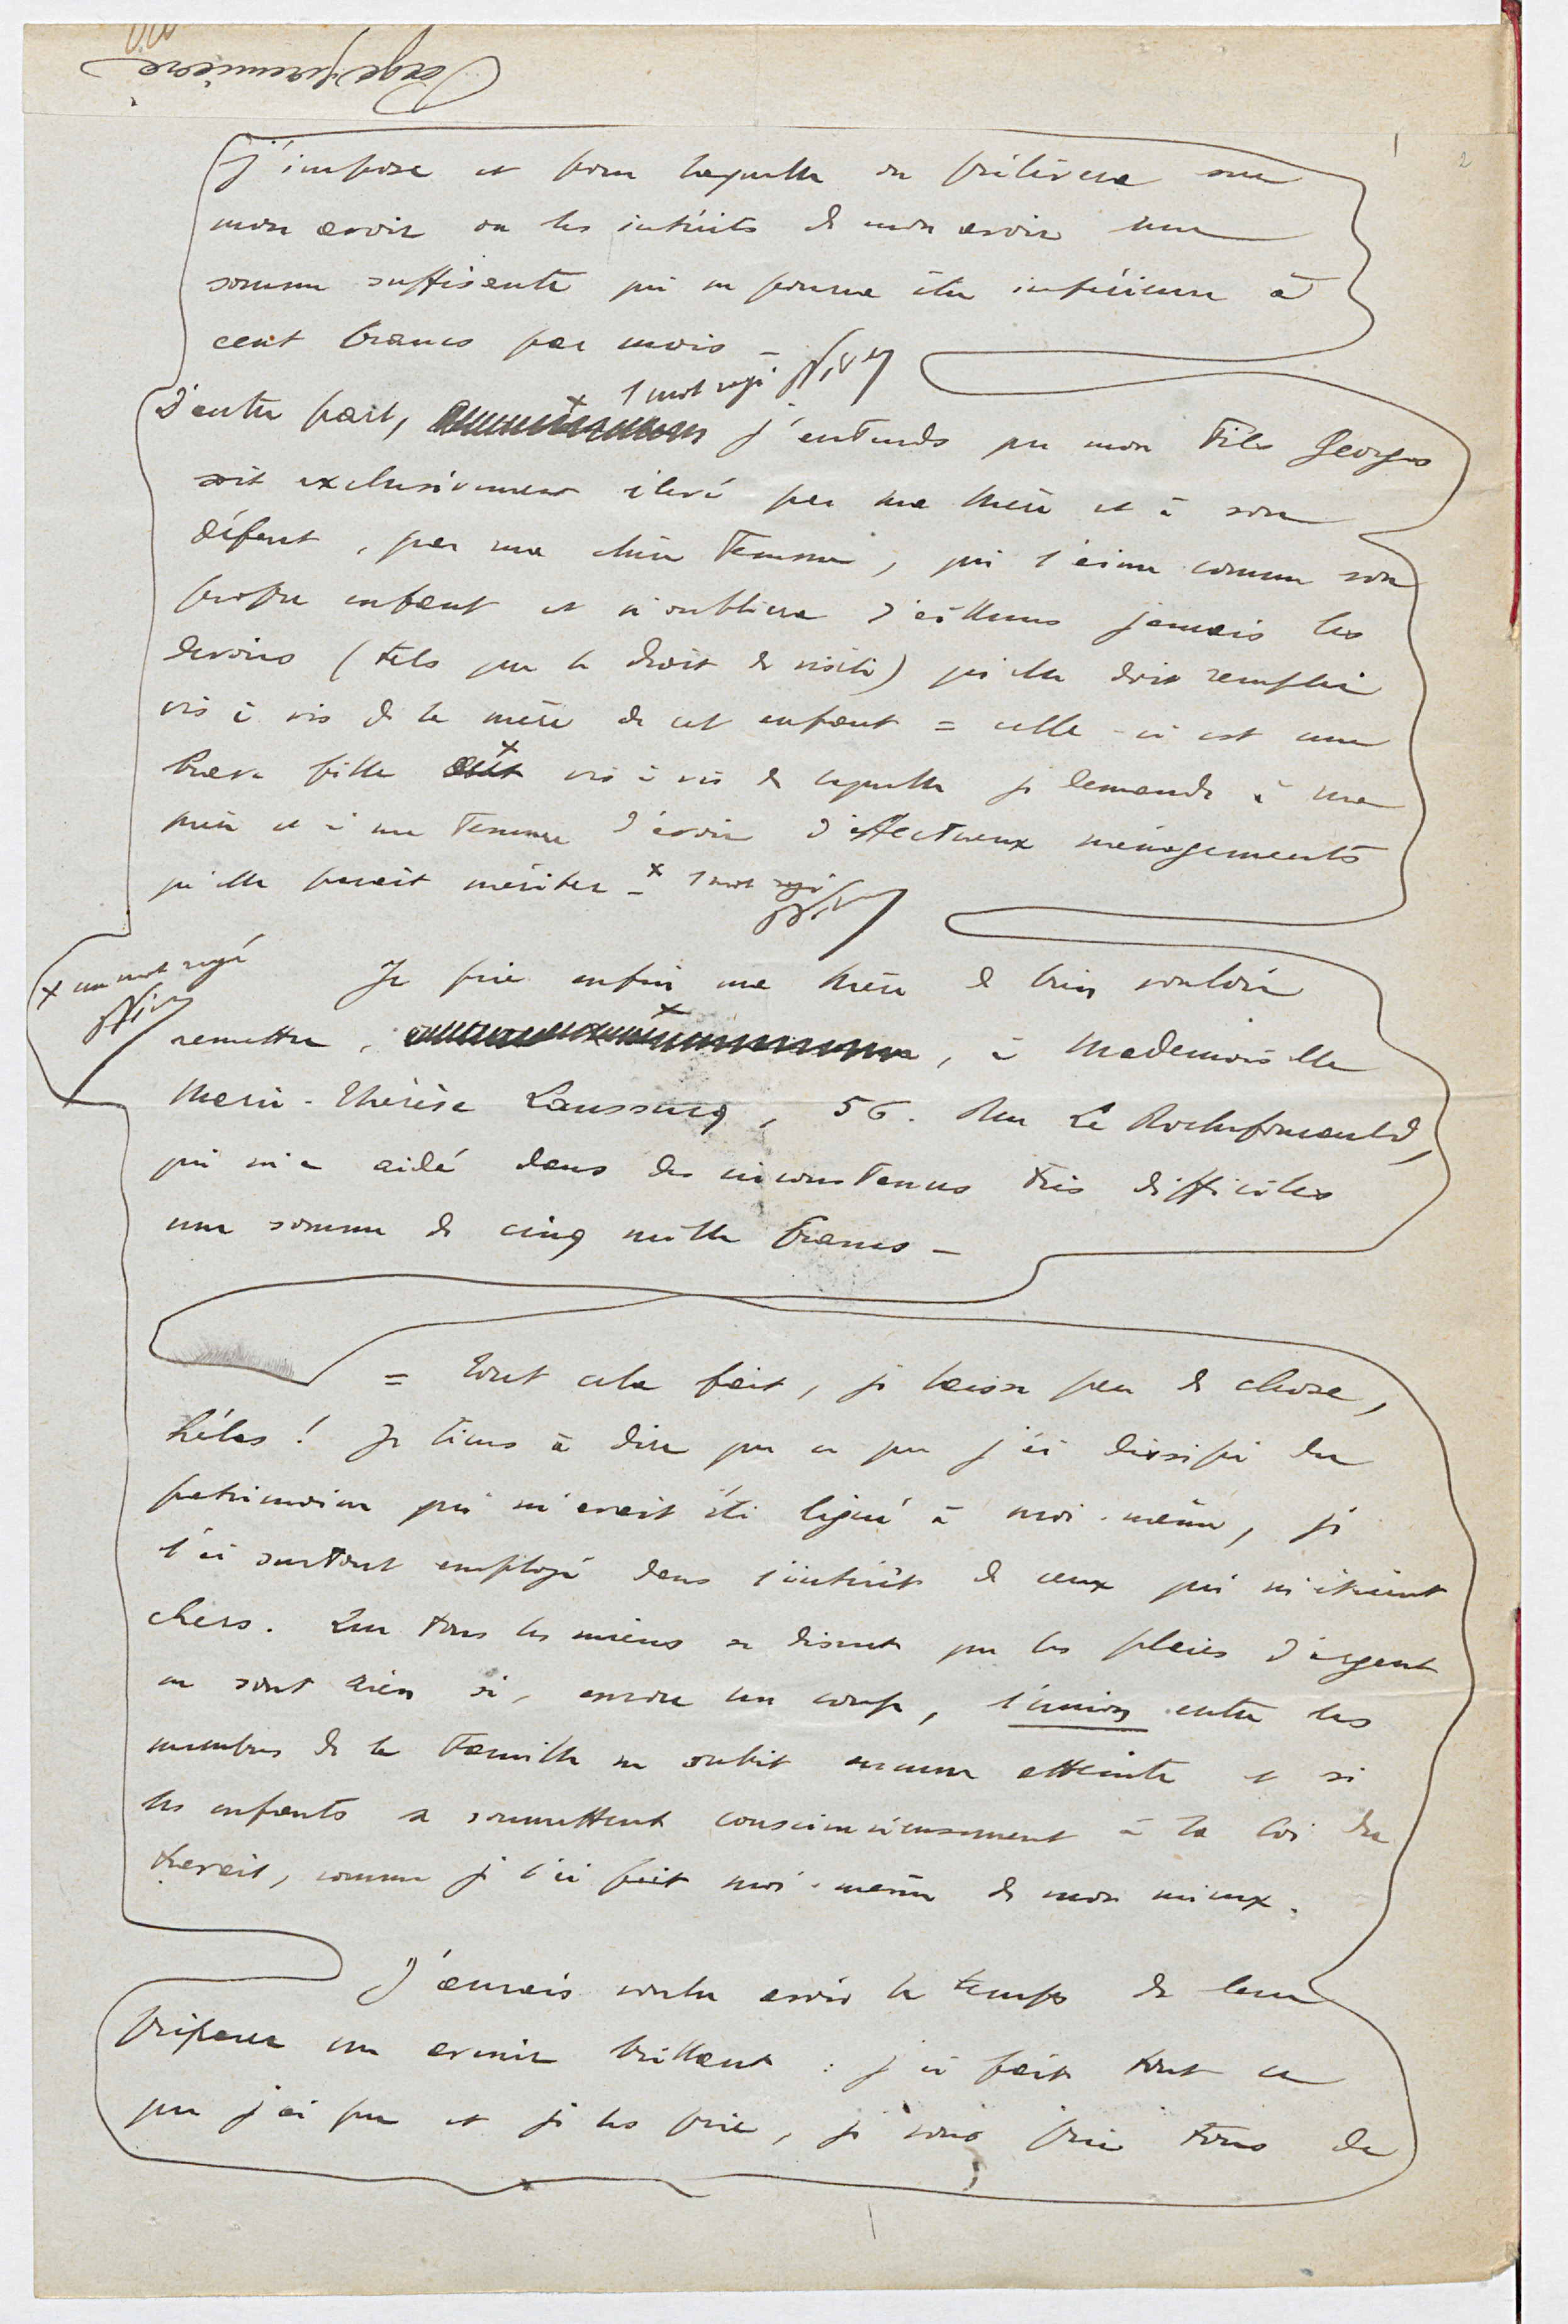 Page première
2
j'impose et pour laquelle on prélèvera sur
mon avoir ou les intérêts de mon avoir une
somme suffisante qui ne pourra être inférieure à
cent francs par mois _
1 mot rayé
D'autre part, j'entends que mon fils Georges
soit exclusivement élevé par ma mère et à son
défaut, par ma chère femme, qui l'aime comme son
propre enfant et n'oubliera d'ailleurs jamais les
devoirs (tels que le droit de visite) qu'elle doit remplir
vis à vis de la mère de cet enfant = celle-ci est une
brave fille vis à vis de laquelle je demande à ma
mère et à ma femme d'avoir d'affectueux ménagements
qu'elle paraît mériter _ x 1 mot rayé
x un mot rayé
Je prie enfin ma mère de bien vouloir
remettre, , à Mademoiselle
Marie-Thérèse Laussucq, 56. Rue La Rochefoucauld,
qui m'a aidé dans des circonstances très difficiles
une somme de cinq mille francs _
= Tout cela fait, je laisse peu de chose,
hélas ! Je tiens à dire que ce que j'ai dissipé du
patrimoine qui m'avait été légué à moi-même, je
l'ai surtout employé dans l'intérêt de ceux qui m'étaient
chers. Que tous les miens se disent que les plaies d'argent
ne sont rien si, encore un coup, l'union entre les
membres de la famille ne subit aucune atteinte et si
les enfants se soumettent consciencieusement à la loi du
travail, comme je l'ai fait moi-même de mon mieux.
J'aurais voulu avoir le temps de leur
préparer un avenir brillant : j'ai fait tout ce
que j'ai pu et je les prie, je vous prie tous de